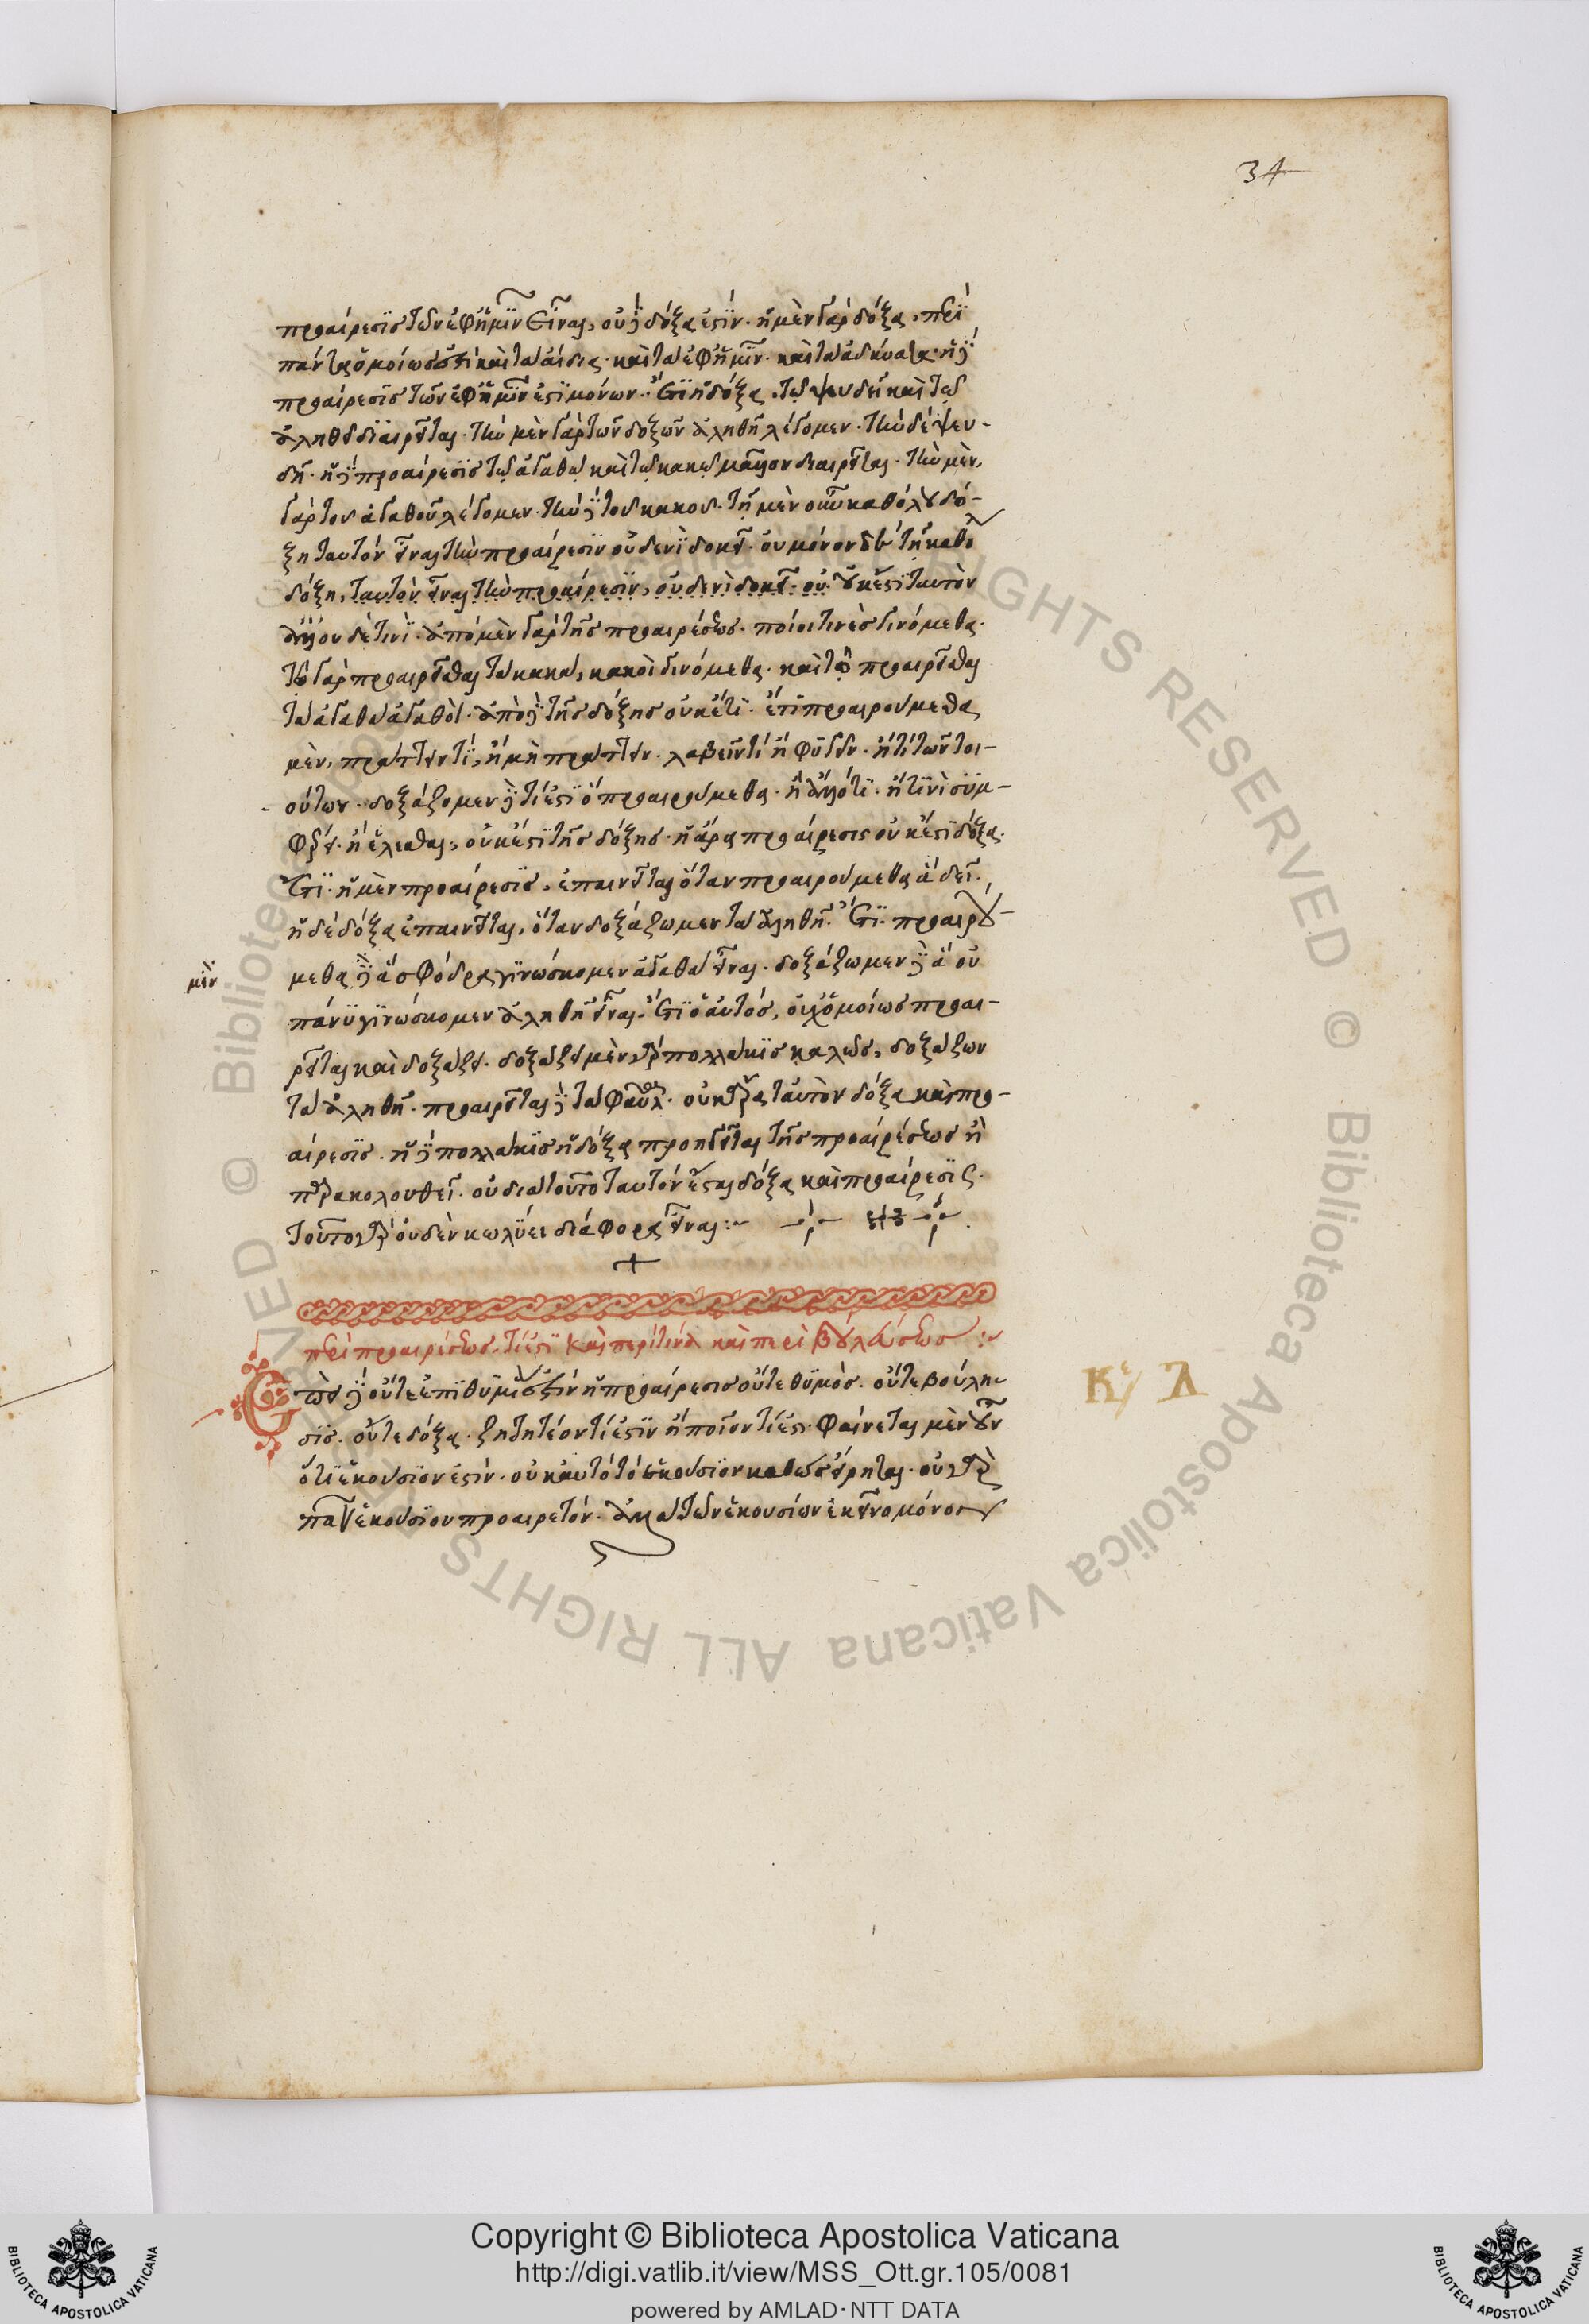 34
προαίρεσϊς τῶν ἐφ ἡμῖν εἶναι, οὐ δὲ δόξα ἐστὶν. ἡ μὲν γὰρ δόξα, περὶ
πάντα ὁμοίως ἐστὶ καὶ τὰ ἀίδια. καὶ τὰ ἐφ ἡμῖν. καὶ τὰ ἀδύνατα. ἡ δὲ
προαίρεσις τῶν ἐφ ἡμῖν ἐστὶ μόνων. ἔτι ἡ δόξα, τῷ ψευδεῖ καὶ τῷ
ἀληθεῖ διαιρεῖται. τὴν μὲν γὰρ τῶν δοξῶν ἀληθῆ λέγομεν. τὴν δὲ ψευ-
δῆ. ἡ δὲ προαίρεσις τῷ ἀγαθῷ καὶ τῷ κακῷ μᾶλλον διαιρεῖται. τὴν μὲν,
γὰρ τοῦ ἀγαθοῦ λέγομεν. τὴν δὲ τοῦ κακοῦ. τῇ μὲν οὖν καθόλου δό-
ξῃ ταυτὸν εἶναι τὴν προαίρεσιν οὐδενὶ δοκεῖ. οὐ μόνον δὲ τῇ καθόλου
δόξῃ, ταυτὸν εἶναι τὴν προαίρεσιν, οὐδενὶ δοκεῖ. οὐ. οὐκ ἔστι ταυτὸν
ἀλλ οὐδὲ τινὶ. ἀπὸ μὲν γὰρ τῆς προαιρέσεως. ποίοι τινὲς γινόμεθα.
τῷ γὰρ προαιρεῖσθαι τὰ κακὰ, κακοὶ γινόμεθα. καὶ τῷ προαιρεῖσθαι
τὰ ἀγαθὰ ἀγαθοὶ. ἀπὸ δὲ τῆς δόξης οὐκέτι. ἔτι προαιρούμεθα
μὲν, πράττειν τὶ, ἢ μὴ πράττειν. λαβεῖν τί ἢ φυγεῖν. ἤ τι τῶν τοι-
ούτων. δοξάζομεν δὲ τί ἐστὶ ὃ προαιρούμεθα. ἢ ἀλλό τι. ἢ τινὶ συμ-
φέρει. ἢ ἑλέσθαι, οὐκ ἔστι τῆς δόξης. ἡ ἄρα προαίρεσις οὐκ ἔστι δόξα.
Ἔτι. ἡ μὲν προαίρεσις, ἐπαινεῖται ὅταν προαιρούμεθα ἃ δεῖ.
ἡ δὲ δόξα ἐπαινεῖται, ὅταν δοξάζωμεν τὰ ἀληθῆ. Ἔτι. προαιρού-
μεθα δὲ ἃ σφόδρα γινώσκομεν ἀγαθὰ εἶναι. δοξάζωμεν δὲ ἃ οὐ
μὲν
πάνυ γινώσκομεν ἀληθῆ εἶναι. Ἔτι ὁ αὐτὸς, οὐχ ὁμοίως προαι-
ρεῖται καὶ δοξάζει. δοξάζει μὲν γὰρ πολλάκις καλῶς, δοξάζων
τὰ ἀληθῆ. προαιρεῖται δὲ τὰ φαῦλα. οὐκ ἄρα ταὐτὸν δόξα καὶ προ-
αίρεσις. ἡ δὲ πολλάκις ἡ δόξα προηγεῖται τῆς προαιρέσεως ἢ
παρακολουθεῖ. οὐ διὰ τοῦτο ταυτὸν ἔσται δόξα καὶ προαίρεσις.
τοῦτο γὰρ οὐδὲν κωλύει διάφορα εἶναι:~
περὶ προαιρέσεως, τί ἐστὶ καὶ περὶ τίνα καὶ περὶ βουλεύσεως :~
Ἐπεὶ δὲ οὔτε ἐπιθυμία ἐστὶν ἡ προαίρεσις οὔτε θυμὸς. οὔτε βούλη-
Κε/ Λ
σις. οὔτε δόξα. ζητητέον τί ἐστὶν ἢ ποῖόν τί ἐστι. φαίνεται μὲν οὖν
ὅτι ἑκούσιον ἐστὶν. οὐκ αὐτὸ τὸ ἑκούσιον καθὼς εἴρηται. οὐ γὰρ
πᾶν ἑκούσιον προαιρετόν. ἀλλὰ τῶν ἑκουσίων ἐκεῖνο μόνον
Copyright © Biblioteca Apostolica Vaticana
http://digi.vatlib.it/view/MSS_Ott.gr.105/0081
powered by AMLAD·NTT DATA